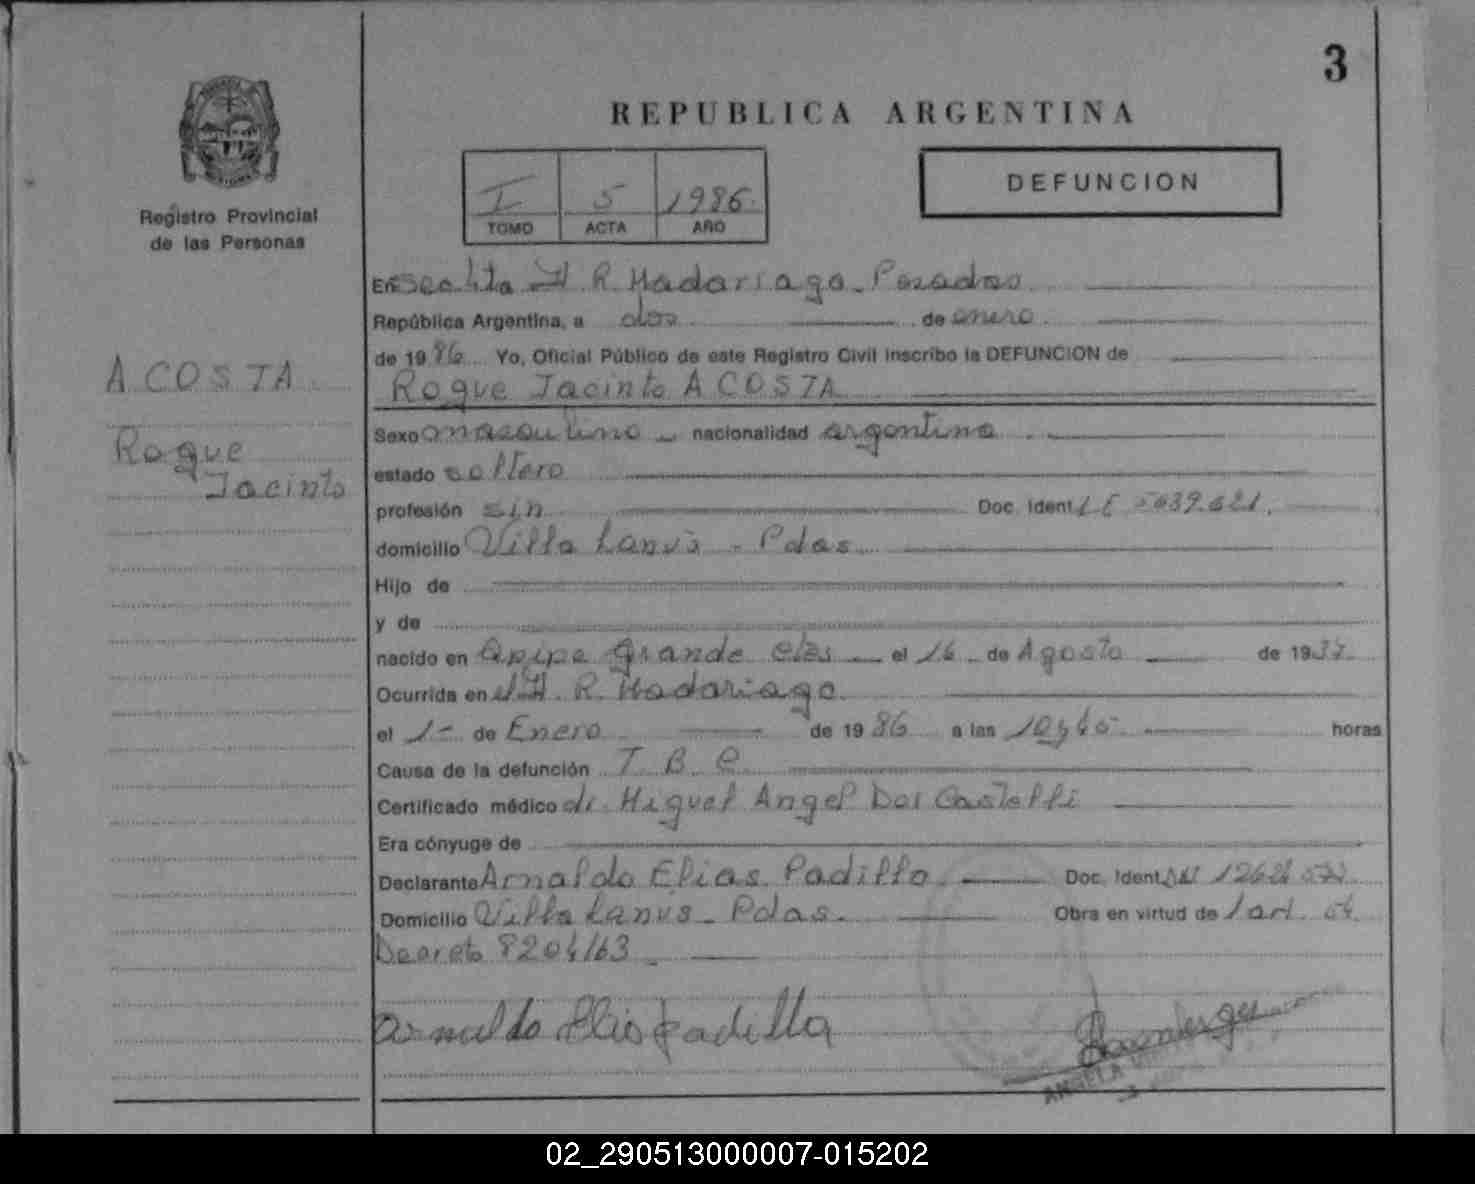 3
REPUBLICA ARGENTINA
I 5 1986
TOMO ACTA AÑO
DEFUNCION
Registro Provincial
de las Personas
ACOSTA
Roque
Jacinto
En Secc. R. Madariaga - Posadas
República Argentina, a dos de enero
de 1986 Yo, Oficial Público de este Registro Civil inscribo la DEFUNCION de
Roque Jacinto ACOSTA
Sexo masculino nacionalidad argentina
estado soltero
profesión sin Doc. Ident. L E
domicilio Villa Lanús - Pdas
Hijo de
y de
nacido en Apipe Grande Ctes el 16 de Agosto de 19
Ocurrida en H. R. Madariaga
el 1- de Enero de 1986 a las horas
Causa de la defunción T B C
Certificado médico dr. Miguel Angel Dei Castelli
Era cónyuge de
Declarante Arnaldo Elias Padilla Doc. Ident.
Domicilio Villa Lanús - Pdas. Obra en virtud de 1 art.
Decreto 8204/63
Arnaldo Elias Padilla
ANGELA
02_290513000007-015202